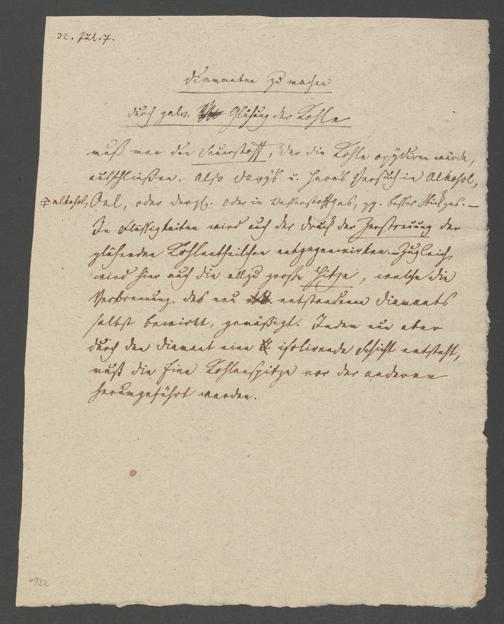 32. Jul. 7.
Diamanten zu machen
durch galv. Glühung der Kohle
muß man den Sauerstoff, der die Kohle oxydiren würde,
ausschließen. Also Davy's u. Versuch in Alkohol,
Oel, oder dergl. oder in Wasserstoffgas, besser Stickgas. —
In Flüssigkeiten wird auch der Druck der Zerstreuung der
glühenden Kohlentheilchen entgegenwirken. Zugleich
wird hier auch die allzu große Hitze, welche die
Verbrennung des neu entstandenen Diamants
selbst bewirkt, gemäßigt. Indem nun aber
durch den Diamant eine isolirende Schicht entsteht,
muß die Eine Kohlenspitze vor der anderen
herumgeführt werden.